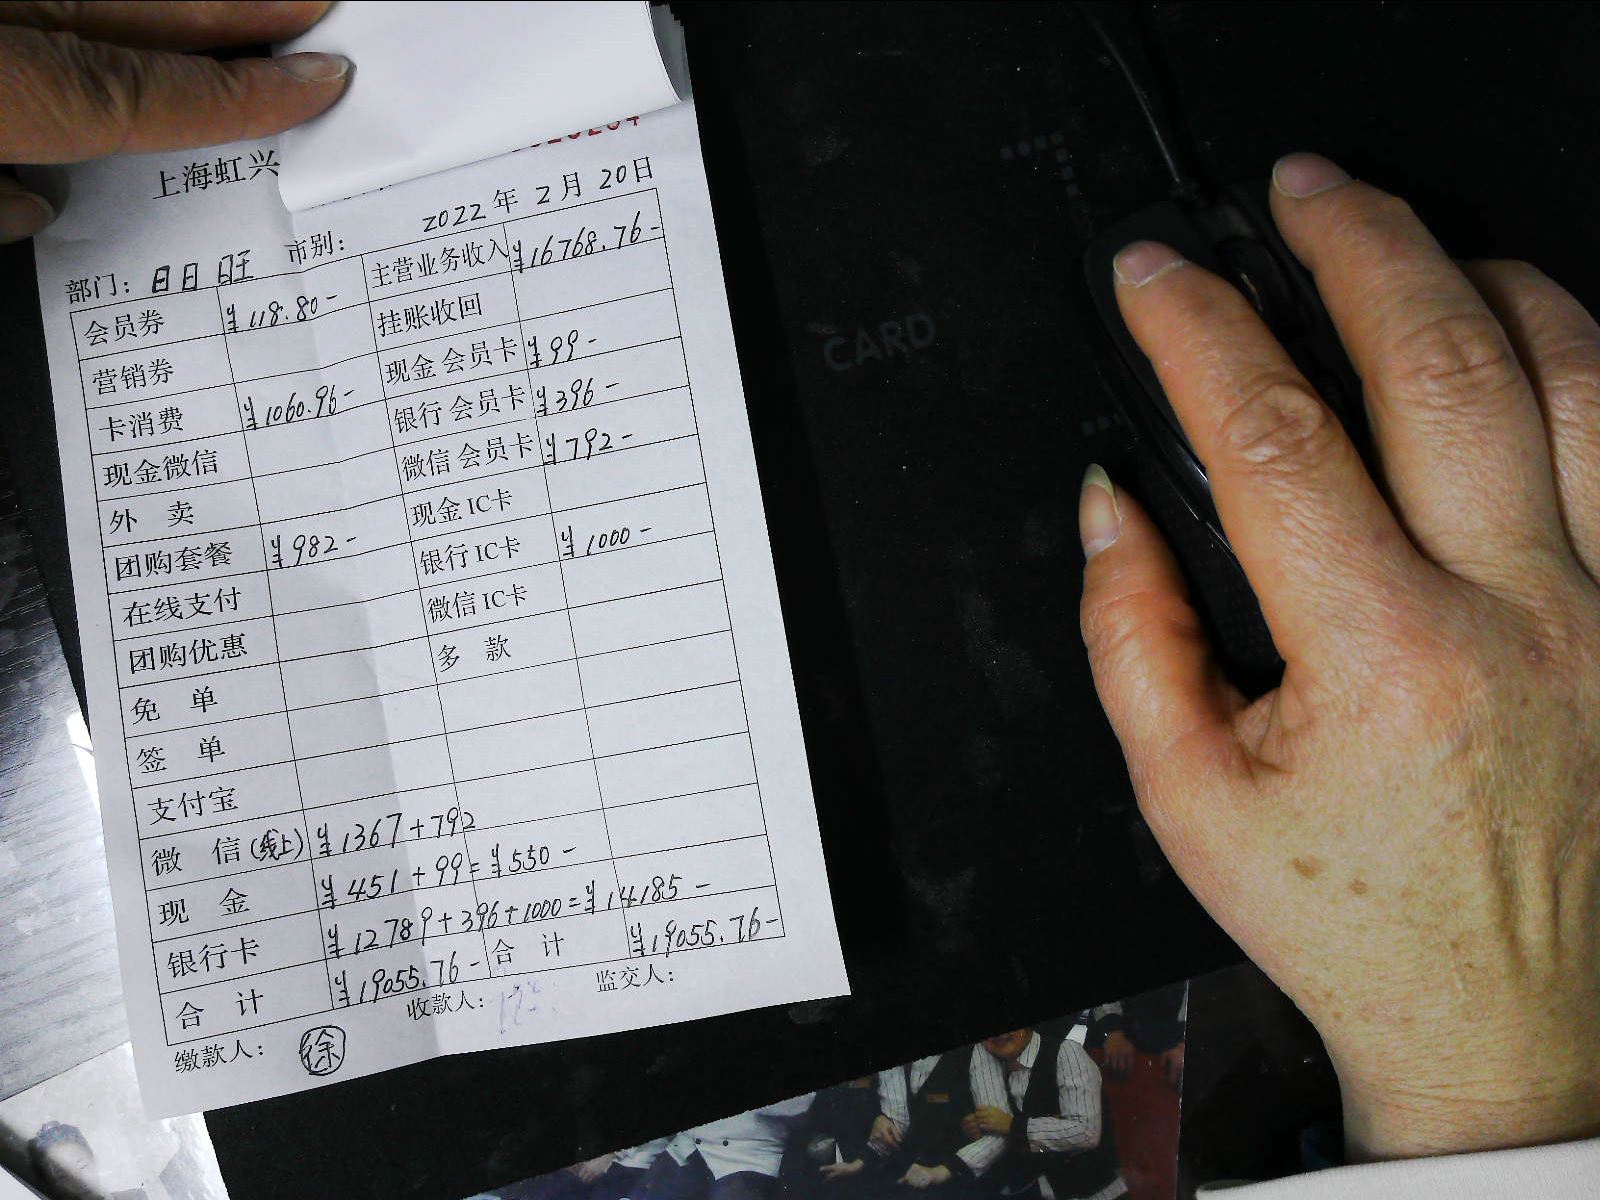 上海虹兴
2022年2月20日
部门：日日旺 市别：
会员券 ¥118.80- 主营业务收入 ¥16768.76-
营销券 挂账收回
卡消费 ¥1060.96- 现金会员卡 ¥99-
现金微信 银行会员卡 ¥396-
外卖 微信会员卡 ¥792-
团购套餐 ¥982- 现金IC卡
在线支付 银行IC卡 ¥1000-
团购优惠 微信IC卡
免单 多款
签单
支付宝
微信(线上) ¥1367+792
现金 ¥451+99=¥550-
银行卡 ¥12789+396+1000=¥14185-
合计 ¥19055.76- 合计 ¥19055.76-
缴款人：徐 收款人： 监交人：
CARD